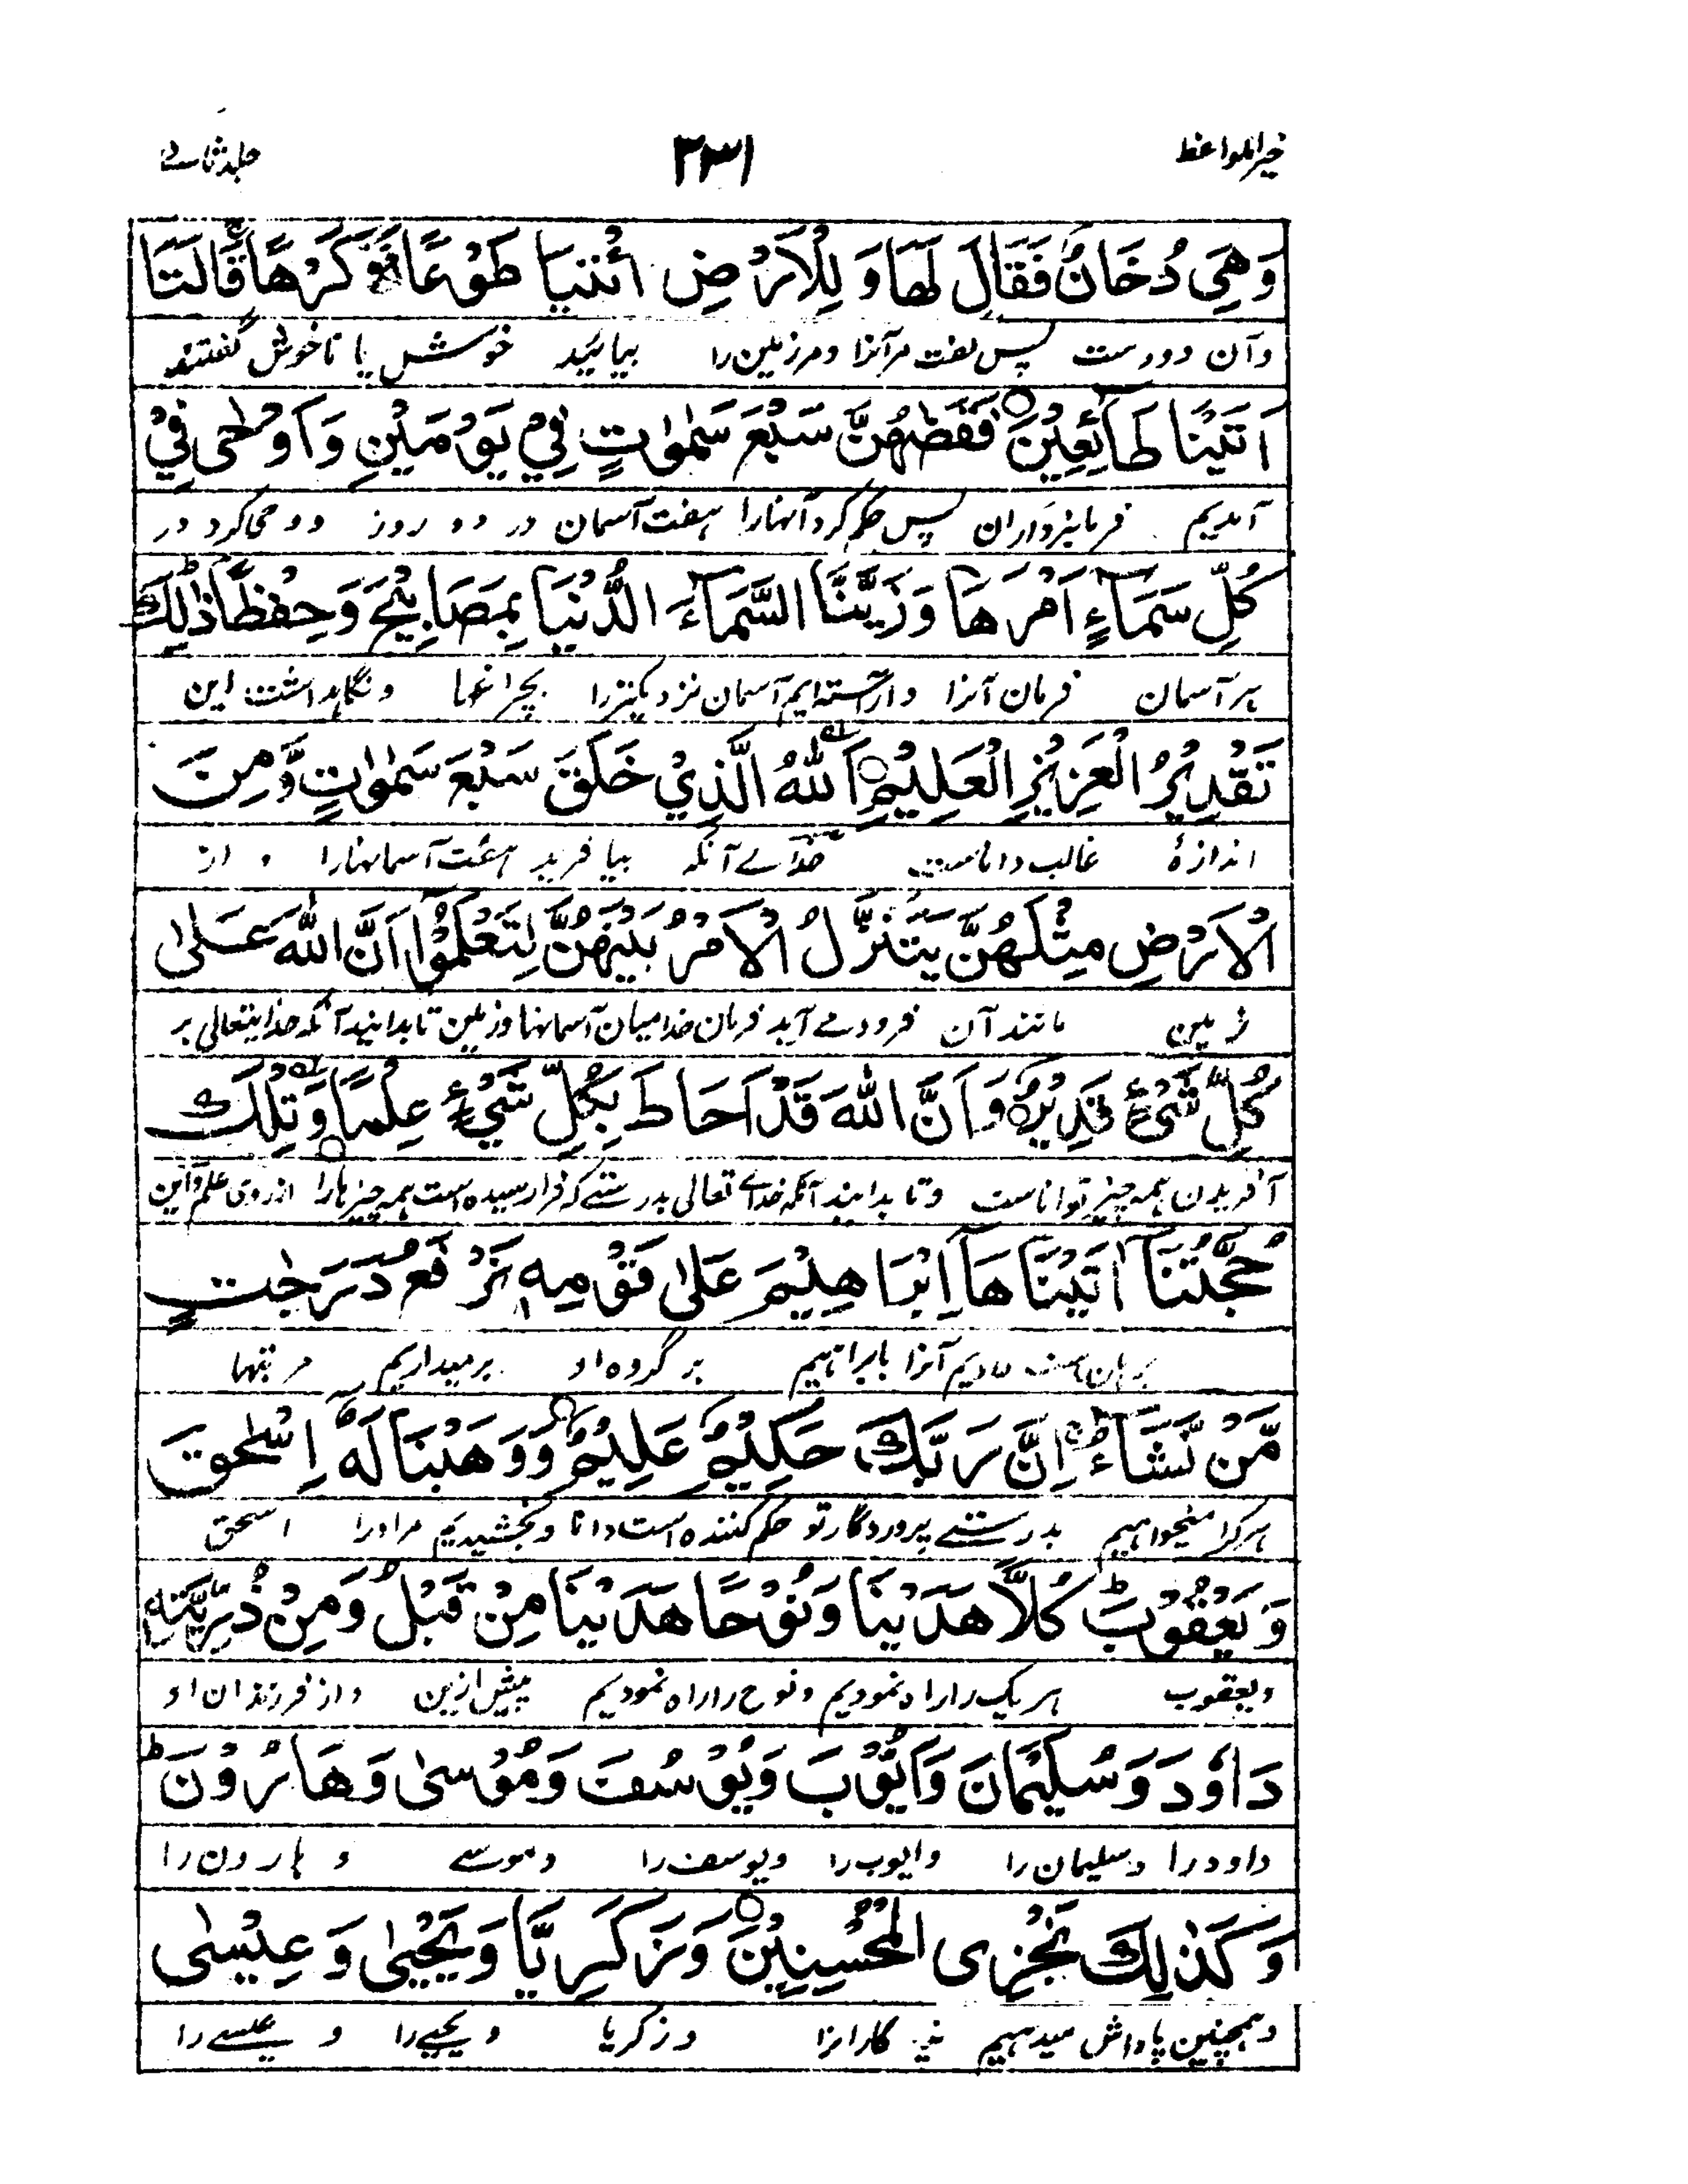 خیرالمواعظ
۳۳۱
جلد ثانے
وَهِيَ دُخَانٌ فَقَالَ لَهَا وَ لِلْاَرْضِ ائْتِيَا طَوْعًا اَوْ كَرْهًا قَالَتَا
وآن دودست پس گفت مرآنرا ومرزمین را بیائید خوشش یا ناخوش گفتند
اَتَيْنَا طَآئِعِيْنَ فَقَضٰهُنَّ سَبْعَ سَمٰوٰتٍ فِيْ يَوْمَيْنِ وَ اَوْحٰى فِيْ
آمدیم فرمانبرداران پس حکم کرد آنهارا ہفت آسمان در دو روز و وحی کرد در
كُلِّ سَمَآءٍ اَمْرَهَا وَ زَيَّنَّا السَّمَآءَ الدُّنْيَا بِمَصَابِيْحَ وَ حِفْظًا ذٰلِكَ
ہر آسمان فرمان آنرا وآراستہ ایم آسمان نزدیکتررا بچراغها ونگاہداشت این
تَقْدِيْرُ الْعَزِيْزِ الْعَلِيْمِ اَللّٰهُ الَّذِيْ خَلَقَ سَبْعَ سَمٰوٰتٍ وَّ مِنَ
اندازۂ غالب داناست خداے آنکہ بیافرید ہفت آسمانهارا و از
الْاَرْضِ مِثْلَهُنَّ يَتَنَزَّلُ الْاَمْرُ بَيْنَهُنَّ لِتَعْلَمُوْا اَنَّ اللّٰهَ عَلٰى
زمین مانند آن فرودمے آید فرمان خدا میان آسمانها وزمین تا بدانید آنکہ خدایتعالی بر
كُلِّ شَيْءٍ قَدِيْرٌ وَ اَنَّ اللّٰهَ قَدْ اَحَاطَ بِكُلِّ شَيْءٍ عِلْمًا وَ تِلْكَ
آفریدن ہمہ چیز تواناست وتا بدانید آنکہ خداے تعالی بدرستے کہ فرارسیدہ است ہمہ چیزہارا ازروی علم واین
حُجَّتُنَآ اٰتَيْنَاهَا اِبْرَاهِيْمَ عَلٰى قَوْمِهٖ نَرْفَعُ دَرَجٰتٍ
برہان ماست دادیم آنرا بابراہیم بر گروہ او برمیداریم مرتبہا
مَّنْ نَّشَآءُ اِنَّ رَبَّكَ حَكِيْمٌ عَلِيْمٌ وَ وَهَبْنَا لَهٗ اِسْحٰقَ
ہرکرا میخواہیم بدرستے پروردگار تو حکم کنندہ است دانا وبخشیدیم مراورا اسحق
وَ يَعْقُوْبَ كُلًّا هَدَيْنَا وَ نُوْحًا هَدَيْنَا مِنْ قَبْلُ وَ مِنْ ذُرِّيَّتِهٖ
ویعقوب ہر یک را راہ نمودیم ونوح را راہ نمودیم پیش ازین واز فرزندان او
دَاوٗدَ وَ سُلَيْمَانَ وَ اَيُّوْبَ وَ يُوْسُفَ وَ مُوْسٰى وَ هَارُوْنَ
داود را وسلیمان را وایوب را ویوسف را وموسے و ہارون را
وَ كَذٰلِكَ نَجْزِى الْمُحْسِنِيْنَ وَ زَكَرِيَّا وَ يَحْيٰى وَ عِيْسٰى
وہمچنین پاداش میدہیم نیکوکارانرا وزکریا ویحیے را و عیسے را